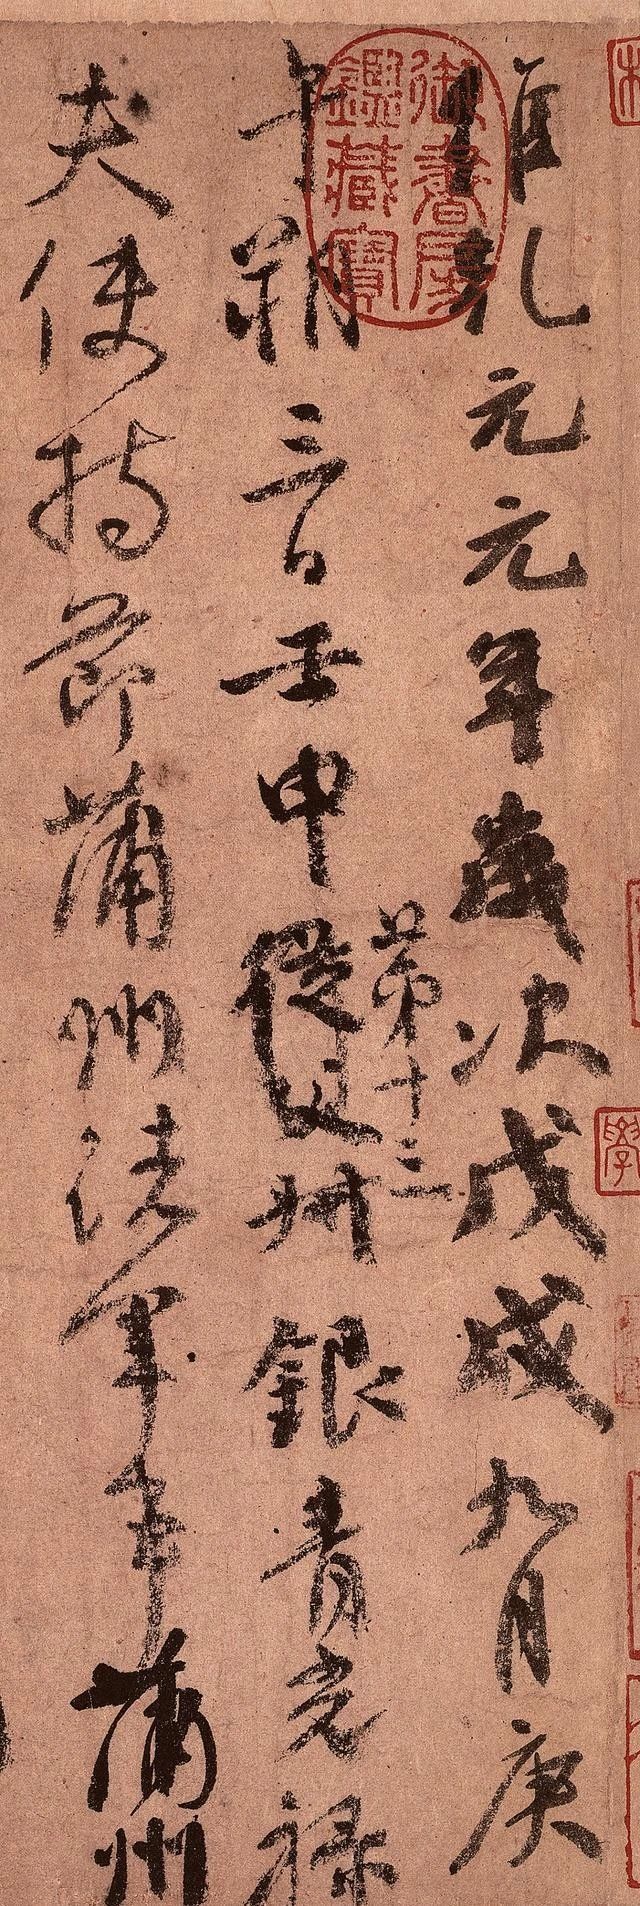 維乾元元年歲次戊戌九月庚
午朔三日壬申從父叔銀青光祿
第十三
夫使持節蒲州諸軍事蒲州
御書房
鑑藏寶